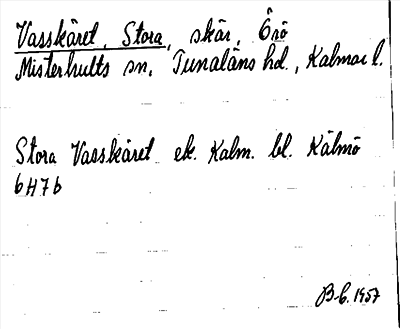 Vasskäret, Stora, skär, Örö
Misterhults sn, Tunaläns hd., Kalmar l.
Stora Vasskäret ek. Kalm. bl. Kälmö
6H7b
B-b. 1957